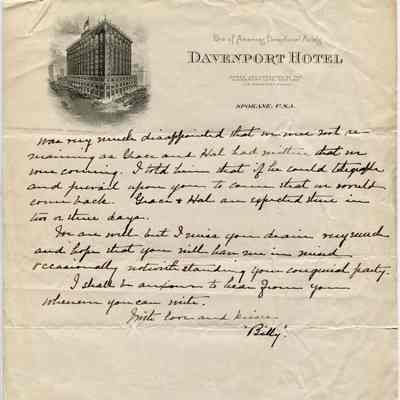 One of America's Exceptional Hotels
DAVENPORT HOTEL
SPOKANE, U.S.A.
was very much disappointed that we were not re
maining as Grace and Hal had written that we
were coming. I told him that if he could telegraph
and prevail upon you to come that we would
come back. Grace & Hal are expected there in
two or three days.
You are well but I miss you dearie very much
and hope that you will have me in mind
occasionally notwithstanding your congenial party.
I shall be anxious to hear from you
whenever you can write.
With love and kisses
"Billy".